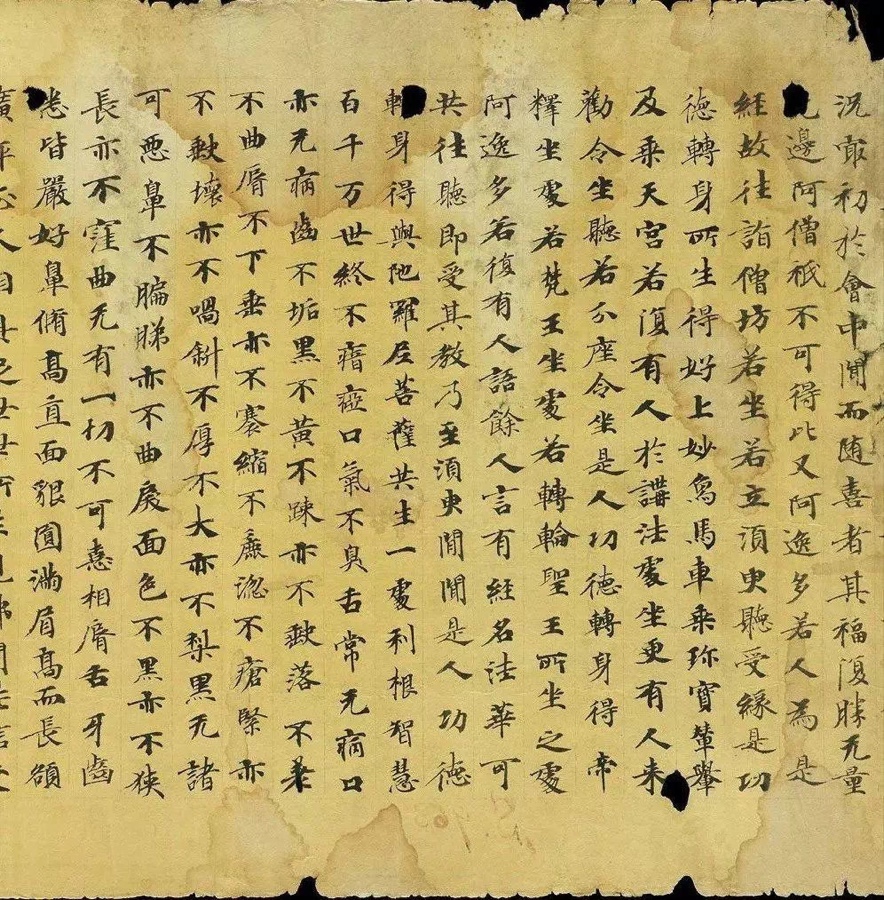 況冣初於會中聞而随喜者其福復勝无量
邊阿僧祇不可得比又阿逸多若人為是
經故往詣僧坊若坐若立湏臾聽受緣是功
德轉身所生得好上妙象馬車乘珎寶輦轝
及乘天宮若復有人於講法處坐更有人来
勸令坐聽若分座令坐是人功德轉身得帝
釋坐處若梵王坐處若轉輪聖王所坐之處
阿逸多若復有人語餘人言有經名法華可
共往聽即受其教乃至湏臾間聞是人功德
轉身得與陁羅尼菩薩共生一處利根智慧
百千万世終不瘖瘂口氣不臭舌常无病口
亦无病齒不垢黑不黃不踈亦不缺落不差
不曲脣不下垂亦不褰縮不麁澁不瘡緊亦
不缺壞亦不喎斜不厚不大亦不梨黑无諸
可惡鼻不匾㔸亦不曲戾面色不黑亦不狹
長亦不窪曲无有一切不可憙相脣舌牙齒
悉皆嚴好鼻脩高直面貌圓滿眉高而長額